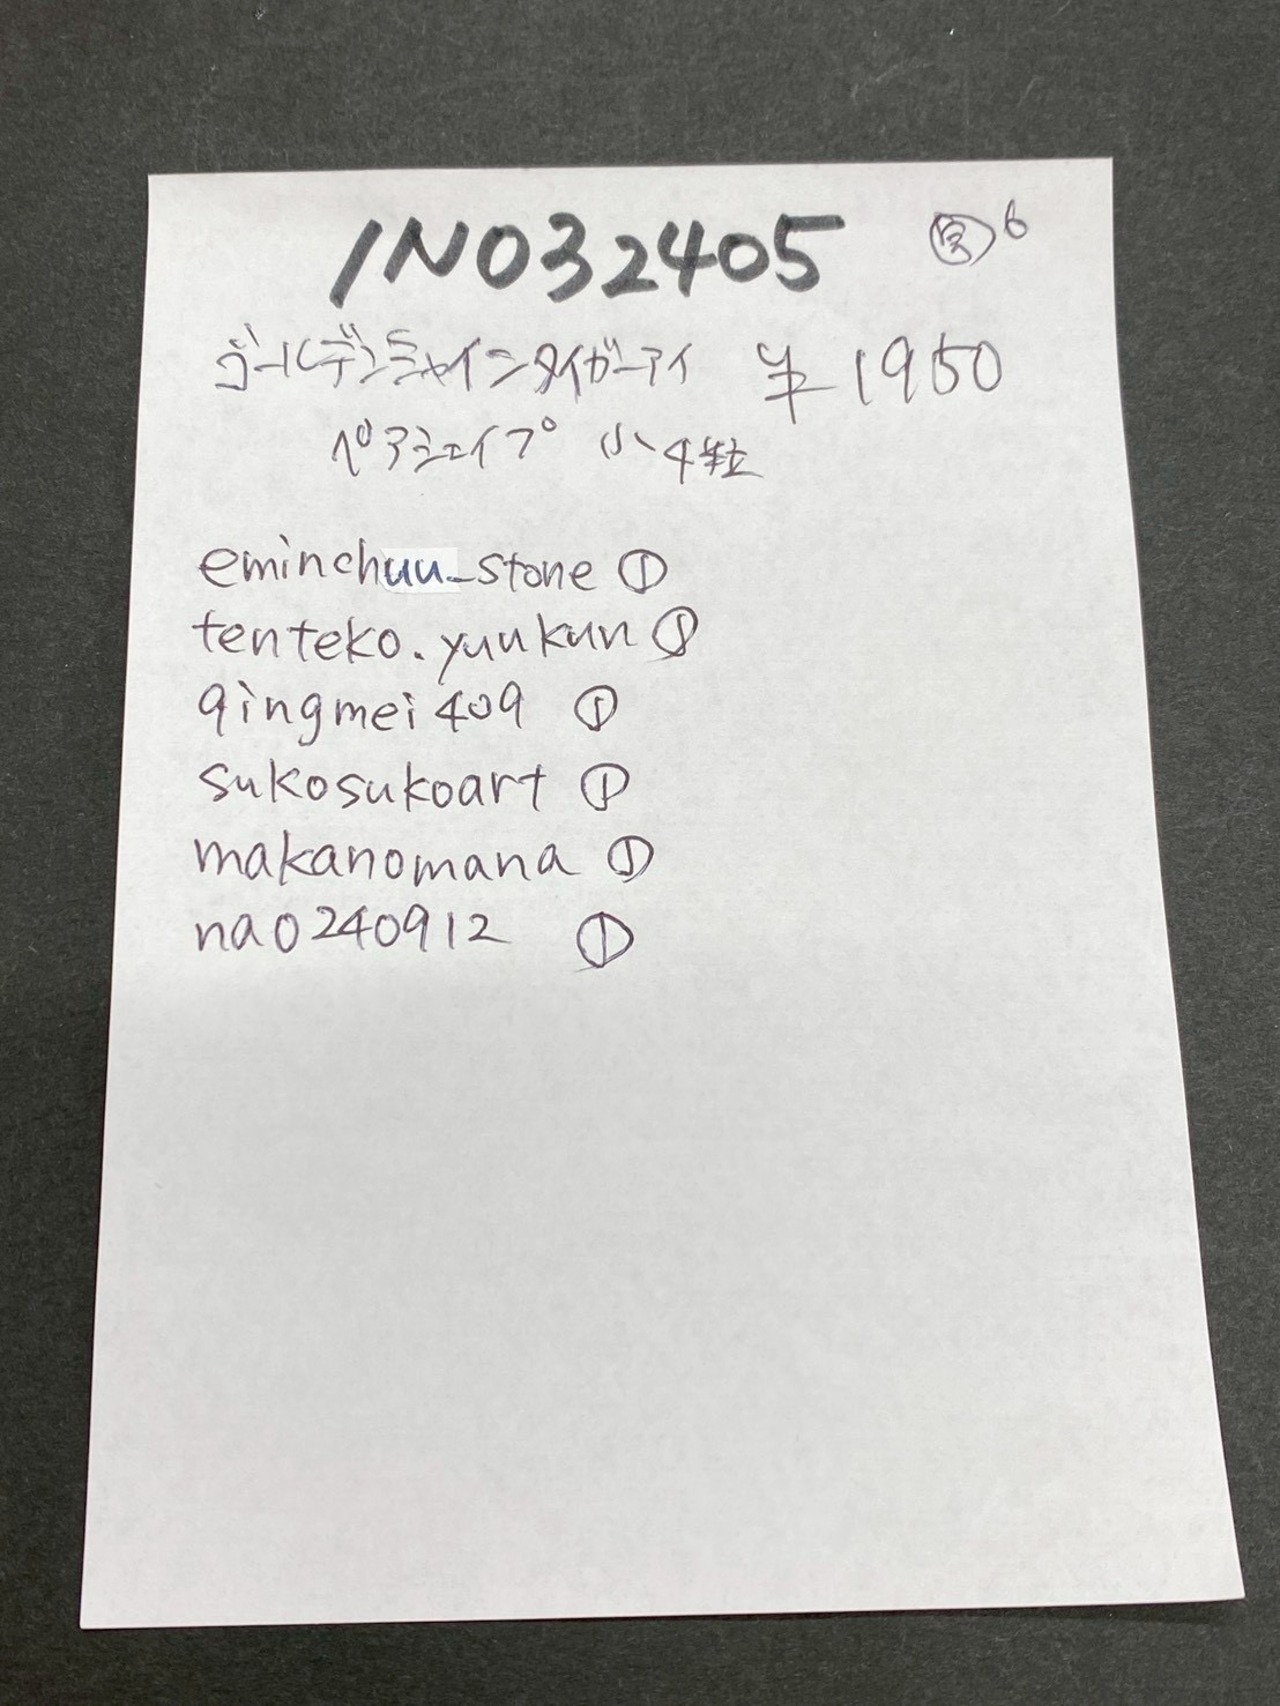 INO32405
6
ゴールデンシャインタイガーアイ ¥1950
ペアシェイプ 小4粒
eminchuu_stone ①
tenteko.yuukun ①
qingmei409 ①
sukosukoart ①
makanomana ①
na0240912 ①